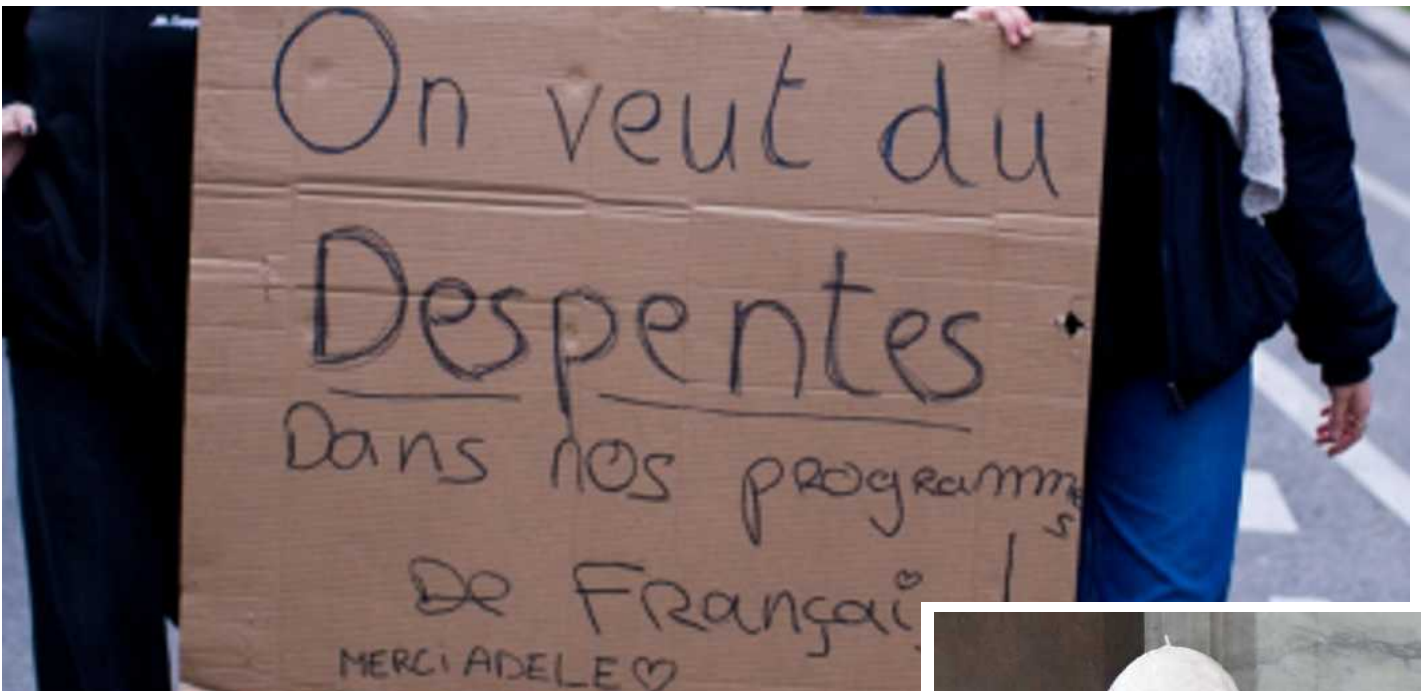 On veut du
Despentes
Dans nos programmes
De Françai
!
MERCI ADELE♡